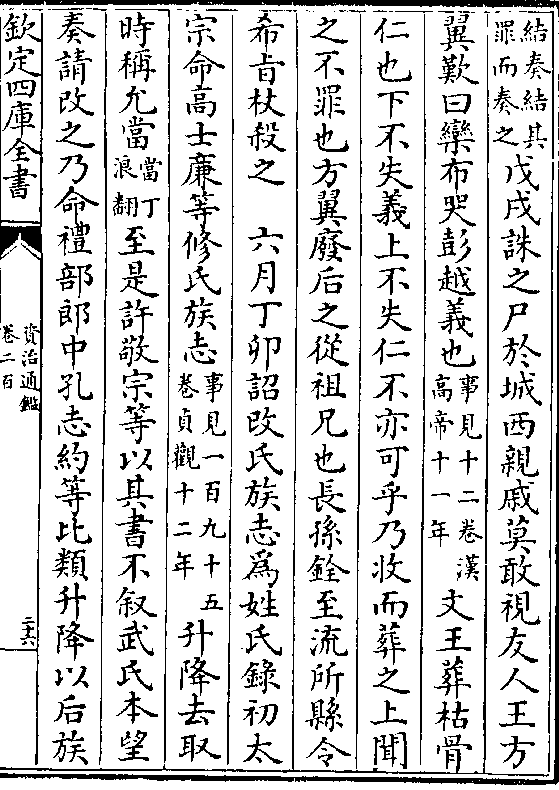 結奏結其
罪而奏之戊戌誅之尸於城西親戚莫敢視友人王方
翼歎曰欒布哭彭越義也事見十二卷漢高帝十一年文王葬枯骨
仁也下不失義上不失仁不亦可乎乃收而葬之上聞
之不罪也方翼廢后之從祖兄也長孫銓至流所縣令
希旨杖殺之　六月丁卯詔改氏族志為姓氏錄初太
宗命高士廉等修氏族志事見一百九十五卷貞觀十二年升降去取
時稱允當當丁浪翻至是許敬宗等以其書不叙武氏本望
奏請改之乃命禮部郎中孔志約等比類升降以后族
欽定四庫全書
資治通鑑
卷二百
二十六